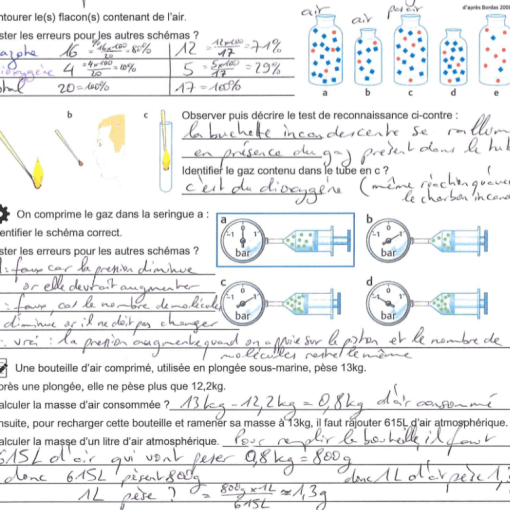 ntourer le(s) flacon(s) contenant de l'air.
air
air
d'après Bordas 200
ster les erreurs pour les autres schémas ?
16 = 16x100/20 = 80%
12 = 12x100/17 = 71%
4 = 4x100/20 = 20%
5 = 5x100/17 = 29%
20 = 100%
17 = 100%
a b c d e
b c
Observer puis décrire le test de reconnaissance ci-contre :
la buchette incandescente se rallum
en présence du gaz présent dans le tub
Identifier le gaz contenu dans le tube en c ?
c'est du dioxygène (même réaction qu'avec
le charbon incand
On comprime le gaz dans la seringue a :
entifier le schéma correct.
ster les erreurs pour les autres schémas ?
: faux car la pression diminue
or elle devrait augmenter
: faux, car le nombre de molécule
diminue or il ne doit pas changer
: vrai : la pression augmente quand on appuie sur le piston et le nombre de
molécules reste le même
a
-1 0 1
bar
b
-1 0 1
bar
c
-1 0 1
bar
d
-1 0 1
bar
Une bouteille d'air comprimé, utilisée en plongée sous-marine, pèse 13kg.
près une plongée, elle ne pèse plus que 12,2kg.
alculer la masse d'air consommée ? 13kg - 12,2kg = 0,8kg d'air consommé
nsuite, pour recharger cette bouteille et ramener sa masse à 13kg, il faut rajouter 615L d'air atmosphérique.
alculer la masse d'un litre d'air atmosphérique. Pour remplir la bouteille, il faut
615L d'air qui vont peser 0,8kg = 800g
donc 615L pèsent 800g
donc 1L d'air pèse 1,
1L pèse ? = 800g x 1L / 615L ≈ 1,3g